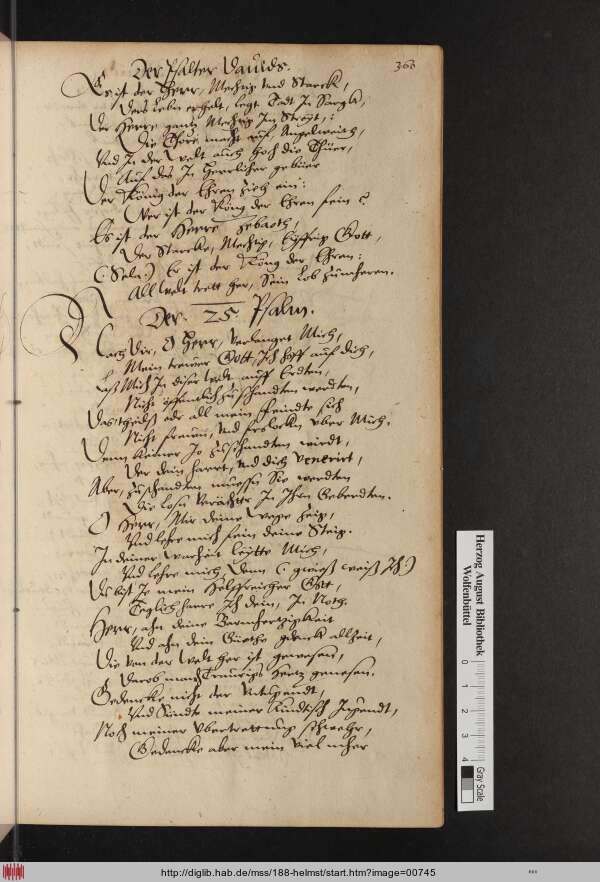 Der Psalter Davids.
360
Es ist der Herr, Mechtig und Starck,
Deß leben erhelt, legt Todt In Sargk,
Der Herre gantz Mechtig Im Streyt,:
Die Thore macht auf Angelweith,
Und In der Welt auch hoch die Thüer,
Auf das In Herrlicher gebüer
Der König der Ehren Zieh ein:
Wer ist der König der Ehren fein?
Es ist der Herre Zebaoth,
Der Starcke, Mechtig, Gott,
(: Sela:) Er ist der König der Ehren:
All Welt trett her, Sein Lob Zuemheren.
Der 25 Psalm.
Nach Dir, O Herr, Verlanget Mich,
Mein trewer Gott, Ich hoff auf dich,
Laß Mich In diser Welt auff Erdten,
Nicht öffentlich Zuschandten werdten,
Das theilß oder all mein Feindte sich
Nicht frewen, und frolockn uber Mich.
Denn keiner Je Zuschandten wirdt,
Der dein harret, und dich Venerirt,
Aber, Zuschandten muessn Sie werdten
Die losn Verächter In Ihrn Geberdten.
O Herr, Mir deine Wege Zeig,
Und lehre mich fein deine Steig.
In deiner Warheit leytte Mich,
Und lehre mich, Denn (: gwieß weiß Ich:)
Du bist Je mein Helffreicher Gott,
Teglich harre Ich dein, In Noth.
Herr, ahn deine Barmhertzigkeit
Und ahn dein Güethe gdenck allzeit,
Die Von der Welt her ist gewesen,
Darob manch Traurigs Hertz genesen.
Gedencke nicht der Untugendt,
Und Sündte meiner Jugendt,
Noch meiner Ubertrettung schwehr,
Gedencke aber mein Viel meher
Herzog August Bibliothek
Wolfenbüttel
0 1 2 3 4
Gray Scale
http://diglib.hab.de/mss/188-helmst/start.htm?image=00745